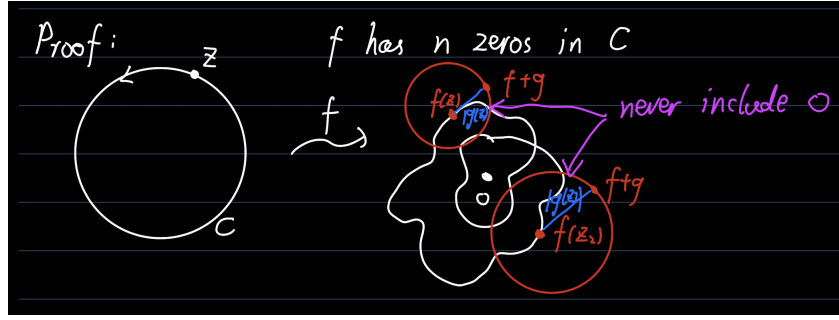 Proof: f has n zeros in C
z
f+g
f(z)
|g(z)|
never include 0
f
0
|g(z₂)|
f+g
f(z₂)
C